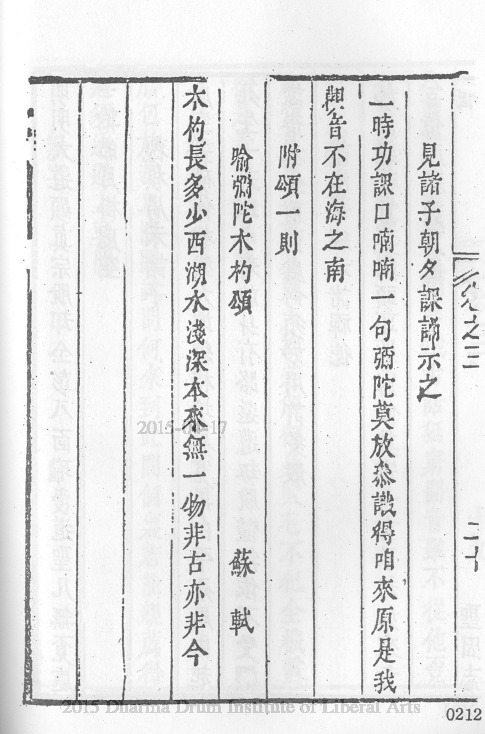 卷之三
二十
見諸子朝夕課誦示之
一時功課口喃喃一句彌陀莫放叅識得咱來原是我
觀音不在海之南
附頌一則
喻彌陀木杓頌
蘇軾
木杓長多少西湖水淺深本來無一物非古亦非今
2015-09-17
2015 Dharma Drum Institute of Liberal Arts
0212